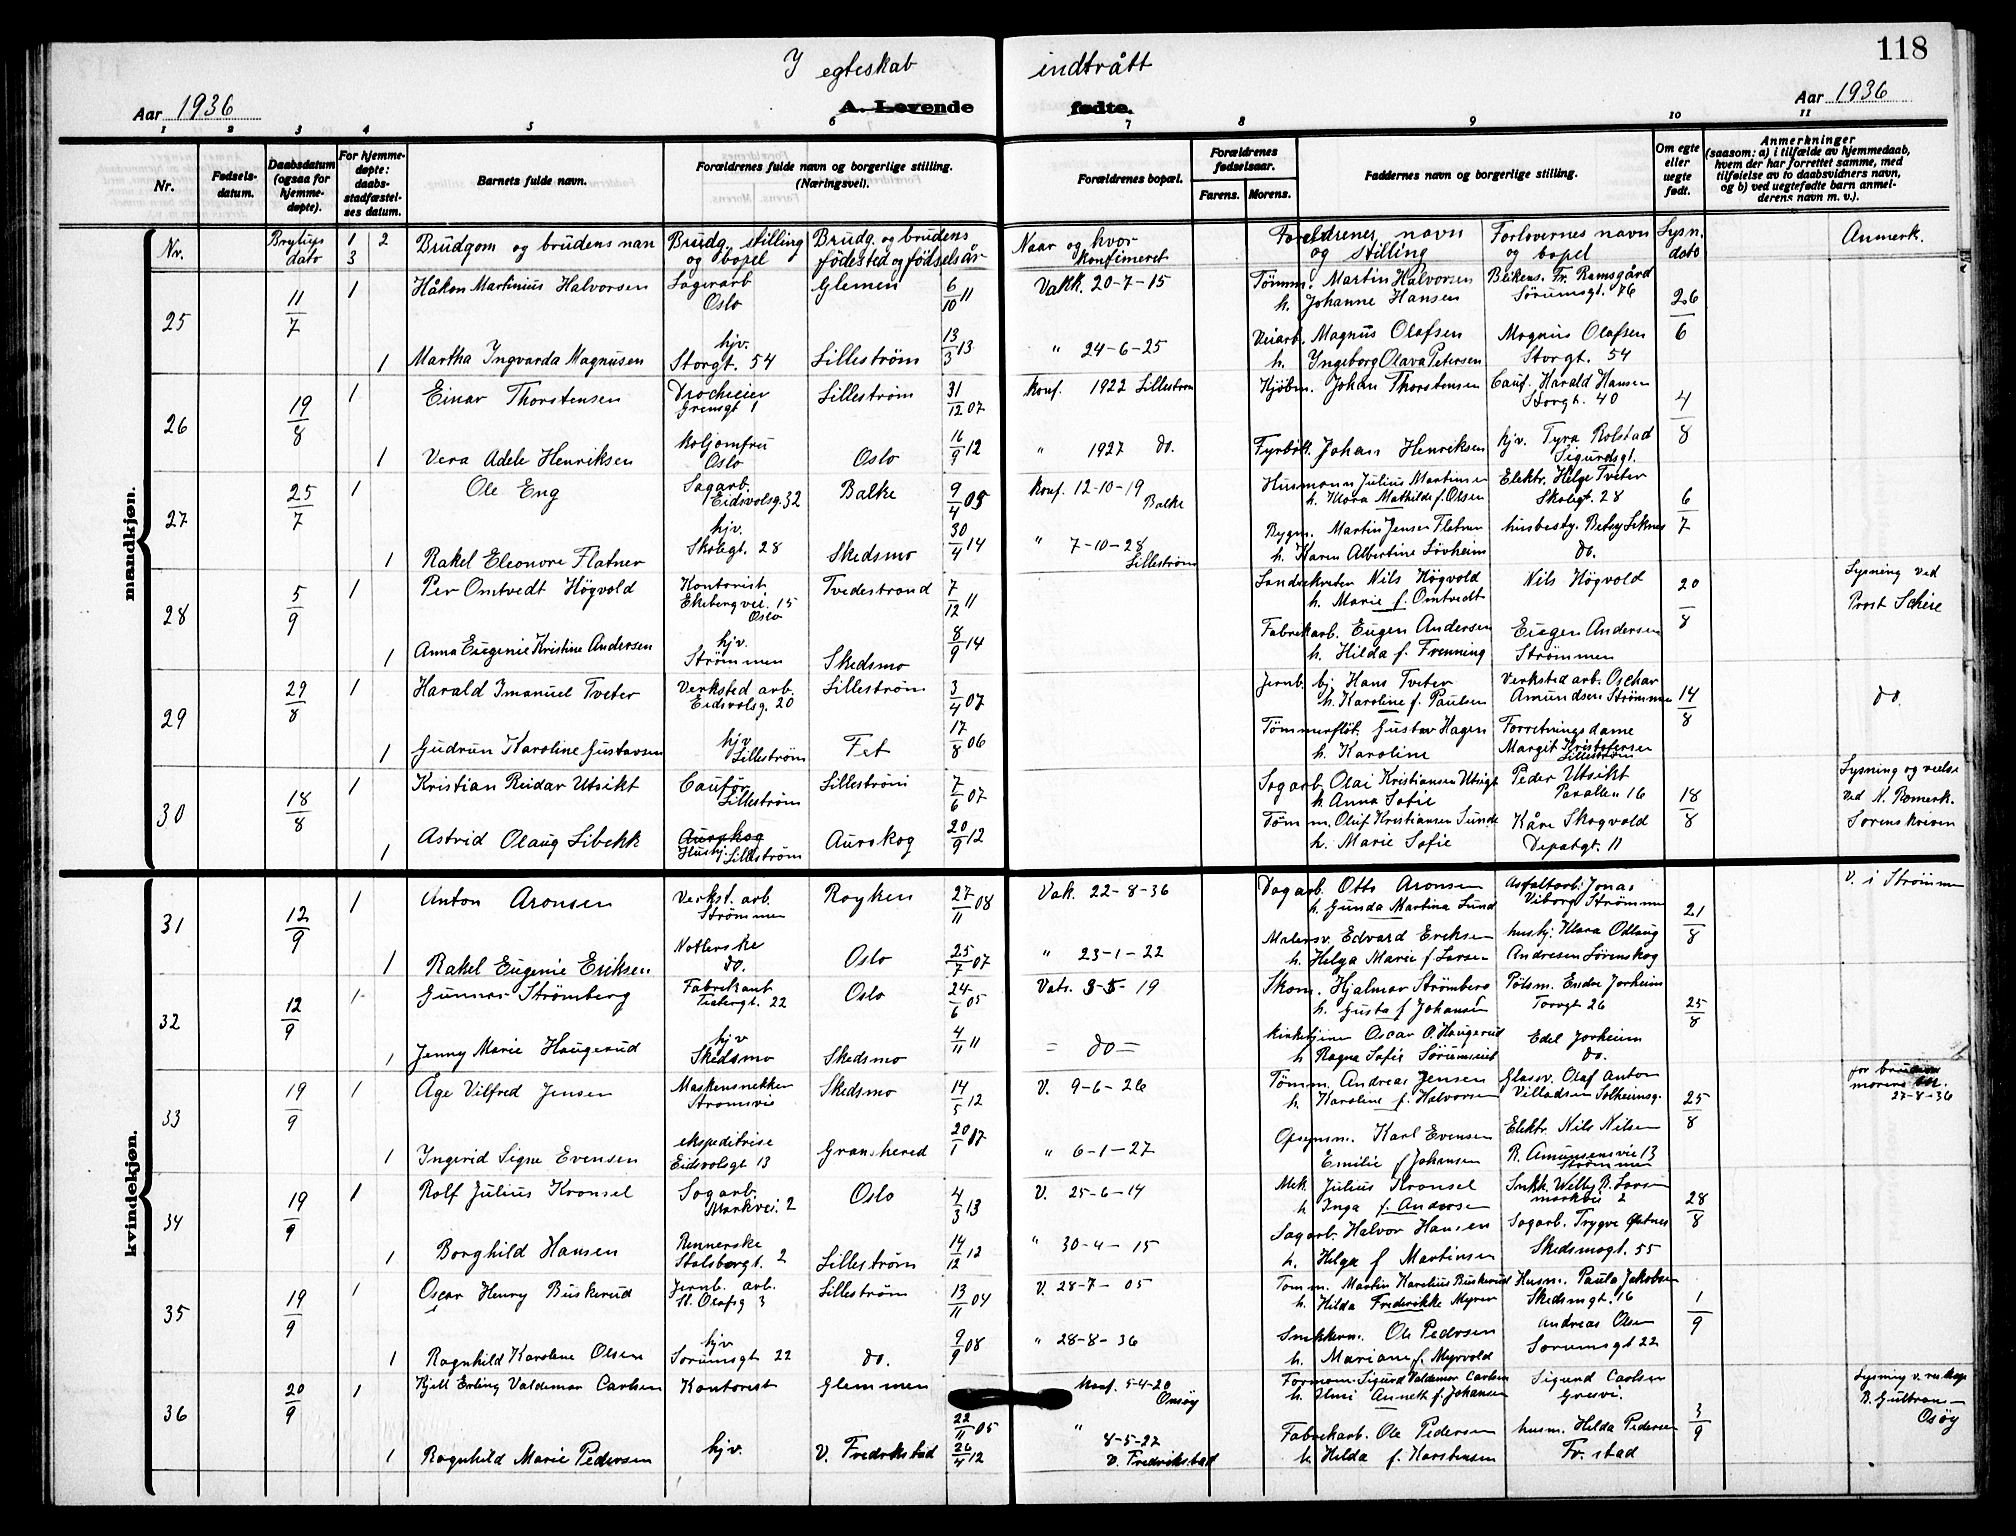 118
I egteskab indtrått
Aar 1936 A. Levende fødte. Aar 1936
1 2 3 4 5 6 7 8 9 10 11
Nr. Fødselsdatum. Daabsdatum (ogsaa for hjemmedøpte). For hjemmedøpte: daabsstadfæstelses datum. Barnets fulde navn. Forældrenes fulde navn og borgerlige stilling. (Næringsvei). Forældrenes bopæl. Forældrenes fødselsaar. Farens. Morens. Faddernes navn og borgerlige stilling. Om egte eller uegte født. Anmerkninger (saasom: a) i tilfælde av hjemmedaab, hvem der har forrettet samme, med tilføielse av to daabsvidners navn, og b) ved uegtefødte barn anmelderens navn m. v.).
Nr. Bryllups dato 1 2 3 Brudgom og brudens nan Brudg. stilling og bopel Brudg. og brudens fødested og fødselsår Naar og hvor konfimeret Foreldrenes navn og stilling Forlovernes navn og bopel Lysn. dato Anmerk.
mandkjøn.
25 11/7 1 Håkon Martinius Halvorsen Sagarb Oslo Glemen 6/10 11 Vakk. 20-7-15 Tømm. Martin Halvorsen h. Johanne Hansen Blikens. Fr. Ramsgård Sørumsgt. 76 26/6
1 Martha Ingvarda Magnusen hjv. Storgt. 54 Lilleström 13/3 13 " 24-6-25 Veiarb. Magnus Olafsen h. Ingeborg Olava Petersen Magnus Olafsen Storgt. 54
26 19/8 1 Einar Thorstensen Drocheier Grensgt 1 Lilleström 31/12 07 konf. 1922 Lillestrøm Kjøbm. Johan Thorstensen Cauf. Harald Hansen Storgt. 40 4/8
1 Vera Adele Henriksen Koljomfru Oslo Oslo 16/9 12 " 1927 do. Fyrbøt. Johan Henriksen hjv. Tyra Rolstad Sigurdsgt.
27 25/7 1 Ole Eng Sagarb. Eidsvolsg. 32 Balke 9/4 05 konf. 12-10-19 Balke Husmann Julius Martinsen h. Klara Mathilde f. Olsen Elektr. Helge Tveter Skolegt. 28 6/7
1 Rakel Eleonore Flatner hjv. Skolegt. 28 Skedsmo 30/4 14 " 7-10-28 Lilleström Bygm. Martin Jensen Flatner h. Karen Albertine Lövheim husbesty. Betsy Seknes do.
28 5/9 1 Per Omtvedt Högvold Kontorist. Ekebergvei. 15 Oslo Tvedestrand 7/12 11 Nils Högvold h. Marie f. Omtvedt Nils Högvold 20/8 Lysning ved Prost Scheie
1 Anna Eugenie Kristine Andersen hjv. Strømmen Skedsmo 8/9 14 Fabrikarb. Eugen Andersen h. Hilda f. Frenning Eugen Andersen Strømmen
29 29/8 1 Harald Imanuel Tveter Verksted arb. Eidsvolsg. 20 Lillestrøm 3/4 07 Jernb. bj. Hans Tveter h. Karoline f. Paulsen Verksted arb. Oschar Amundsen Strømmen 14/8 do.
1 Gudrun Karoline Gustavsen hjv. Lillestrøm Fet 17/8 06 Tømmerfløt. Gustav Hagen h. Karoline Forretningsdame Margit Kristofersen Lillestrøm
30 18/8 1 Kristian Reidar Utsikt Caufør Lillestrøm Lillestrøm 7/6 07 Sagarb. Olai Kristiansen Utsigt h. Anna Sofie Peder Utsikt Parallen 16 18/8 Lysning og vielse ved N. Romerk. Sorenskriven
1 Astrid Olaug Libekk Aurskog Hushj. Lillestrøm Aurskog 20/9 12 Tømm. Oluf Kristiansen Sunde h. Marie Sofie Kåre Skogvold Depotgt. 11
kvindekjøn.
31 12/9 1 Anton Aronsen Verkst. arb. Strømmen Royken 27/11 08 Vak. 22-8-36 Dagarb. Otto Aronsen h. Gunda Martina Lund Asfaltarb. Jonas Viborg Strømmen 21/8 V. i Strømmen
1 Rakel Eugenie Eriksen do. Oslo 25/7 07 " 23-1-22 Malersv. Edvard Eriksen h. Helga Marie f Larsen hushj. Klara Odlaug Andresen Lörenskog
32 12/9 1 Gunnar Strømberg Fabrikant 22 Oslo 24/6 05 Vats. 3-5-19 Skom. Hjalmar Strømberg h. Gusta f Johansen Pölsm. Endre Jorheim Torvgt 26 25/8
1 Jenny Marie Haugerud hjv Skedsmo Skedsmo 4/11 11 = do = Kirketjener Oscar O. Haugerud h Ragna Sofie Edel Jorheim do.
33 19/9 1 Åge Vilfred Jensen Maskensnekker Strømsvie Skedsmo 14/5 12 V. 9-6-26 Tømm. Andreas Jensen h. Karoline f. Halvorsen Glassv. Olaf Anton Villadsen Solheimsg. 25/8 for morens 27-8-36
1 Ingerid Signe Evensen ekspeditrise Eidsvolsgt 13 Gransherad 20/1 17 " 6-1-27 Opsynsm. Karl Evensen Emilie f Johansen Elektr. Nils Nilsen R. Amunsensvei 13 Strømmen
34 19/9 1 Rolf Julius Kronsel Sagarb. Markvei. 2 Oslo 4/3 13 V. 25-6-14 Mek. Julius Kronsel h Inga f. Andersen Snkk. Willy B. Larsen markvei 2 28/8
1 Borghild Hansen Rennerske Stalsbergt. 2 Lillestrøm 14/12 12 " 30-4-15 Sagarb. Halvor Hansen h. Helga f Martinsen Sagarb. Trygve Skedsmogt. 55
35 19/9 1 Oscar Henry Buskerud Jernb. arb. St. Olafsg 3 Lillestrøm 13/11 04 V. 28-7-05 Tomm. Martin Karelius Buskerud h. Hilda Frederikke Myrer Husm. Paula Jakobsen Skedsmgt. 16 1/9
1 Ragnhild Karoline Olsen hjv Sorumsgt 22 do. 9/9 08 " 28-8-36 Snekkerm. Ole Pedersen h. Mariane f. Myrvold Andreas Olsen Sorumsgt 22
36 20/9 1 Kjell Erling Valdemar Carlsen Kontorist Glemmen 22/11 05 Konf. 5-4-20 Onsøy Formann Sigurd Valdemar Carlsen h. Anneth f. Johansen Sigurd Carlsen Gresvi. 3/9 Lysning v. B. Gulbrans- Osöy
1 Ragnhild Marie Pedersen hjv. V. Fredrikstad 26/4 12 " 8-5-27 V. Fredrikstad Fabrikarb. Ole Pedersen h. Hilda f. Karstensen husm. Hilda Pedersen Fr. stad